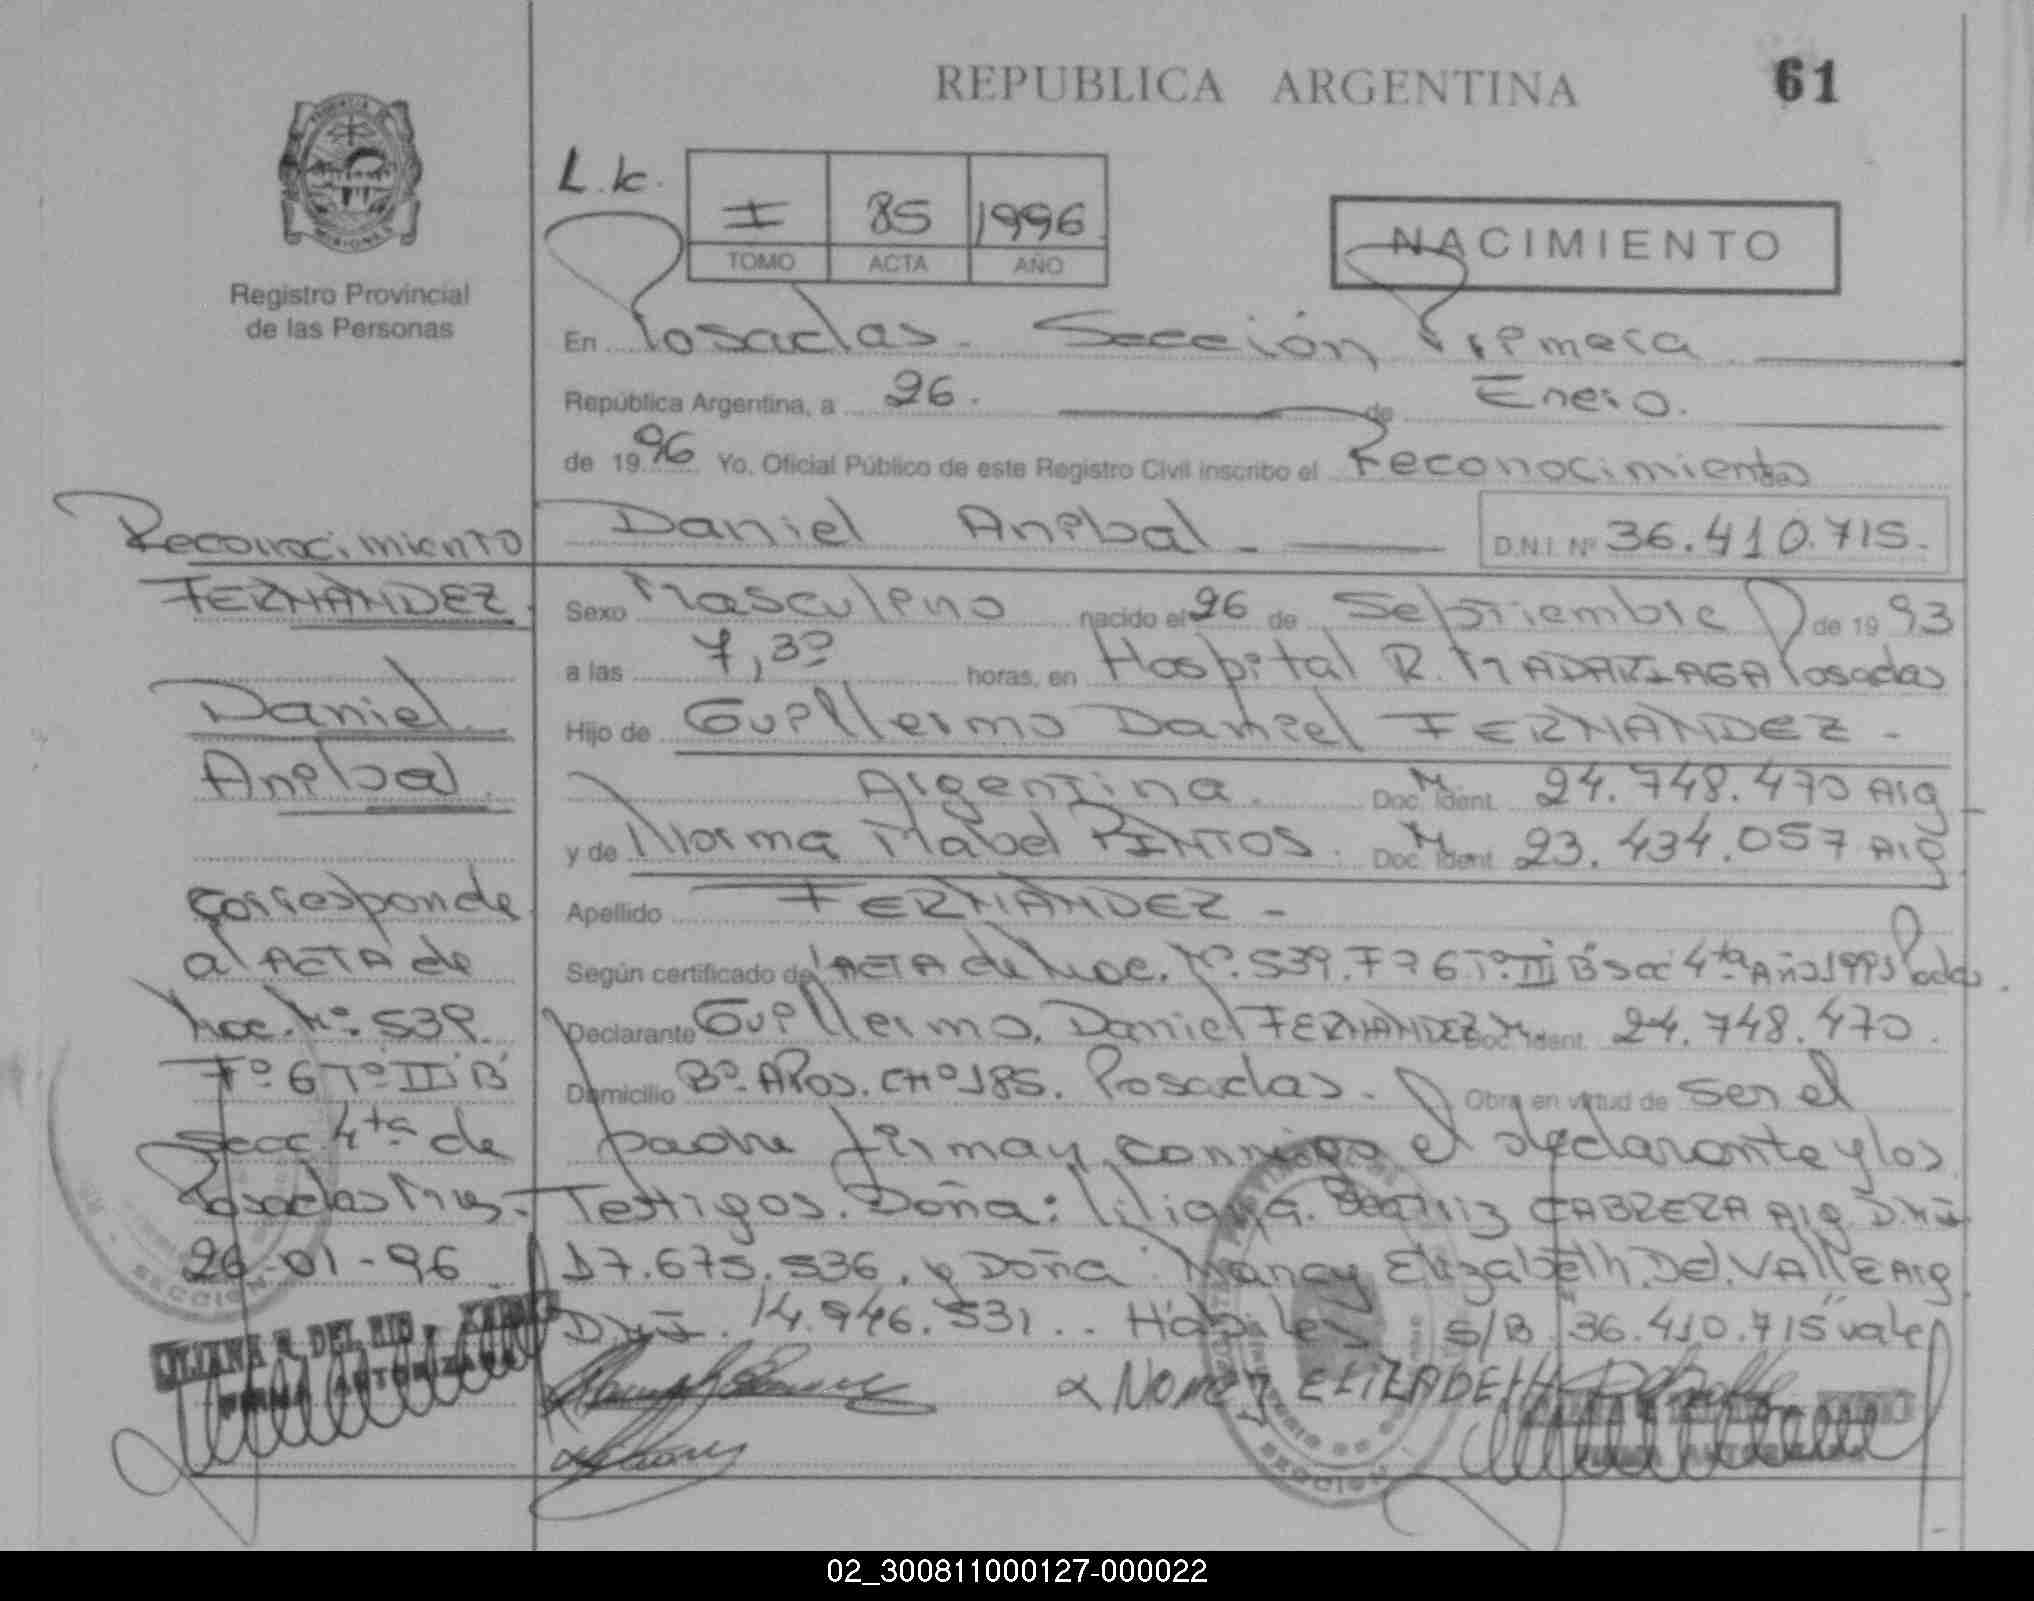 REPUBLICA ARGENTINA 61
Registro Provincial
de las Personas
L.k.
I 85 1996
TOMO ACTA AÑO
NACIMIENTO
En Posadas. Sección Primera
República Argentina, a 26. de Enero.
de 1996 Yo, Oficial Público de este Registro Civil inscribo el Reconocimiento
Daniel Anibal - D.N.I. Nº 36.410.715.
Sexo Masculino nacido el 26 de Septiembre de 1993
a las 7,30 horas, en Hospital R. MADARIAGA Posadas
Hijo de Guillermo Daniel FERNANDEZ -
Argentina. Doc. Ident. 24.748.470 Arg
y de Norma Mabel PINTOS. Doc. Ident. 23.434.057 Arg
Apellido FERNANDEZ -
Según certificado de ACTA de Nac. Nº. 539. Fº 6 Tº III B Sec 4ta Año 1993
Declarante Guillermo, Daniel FERNANDEZ Doc. Ident. 24.748.470.
Domicilio Bº. APos. CHº 185. Posadas. Obra en virtud de ser el
padre firman conmigo el declarante y los
Testigos. Doña: Liliana. Beatriz CABRERA Arg. D.N.I
17.675.536. y Doña Nancy Elizabeth. Del. VALLE Arg
D.N.I. 14.946.531.. Hábiles S/B "36.410.715" vale
Reconocimiento
FERNANDEZ.
Daniel
Anibal.
corresponde
al ACTA de
Nac. Nº. 539.
Fº. 6 Tº III B
Secc 4ta de
Posadas Mnes.
26-01-96
LILIANA N. DEL RIO
FIRMA AUTORIZADA
SECCION
02_300811000127-000022